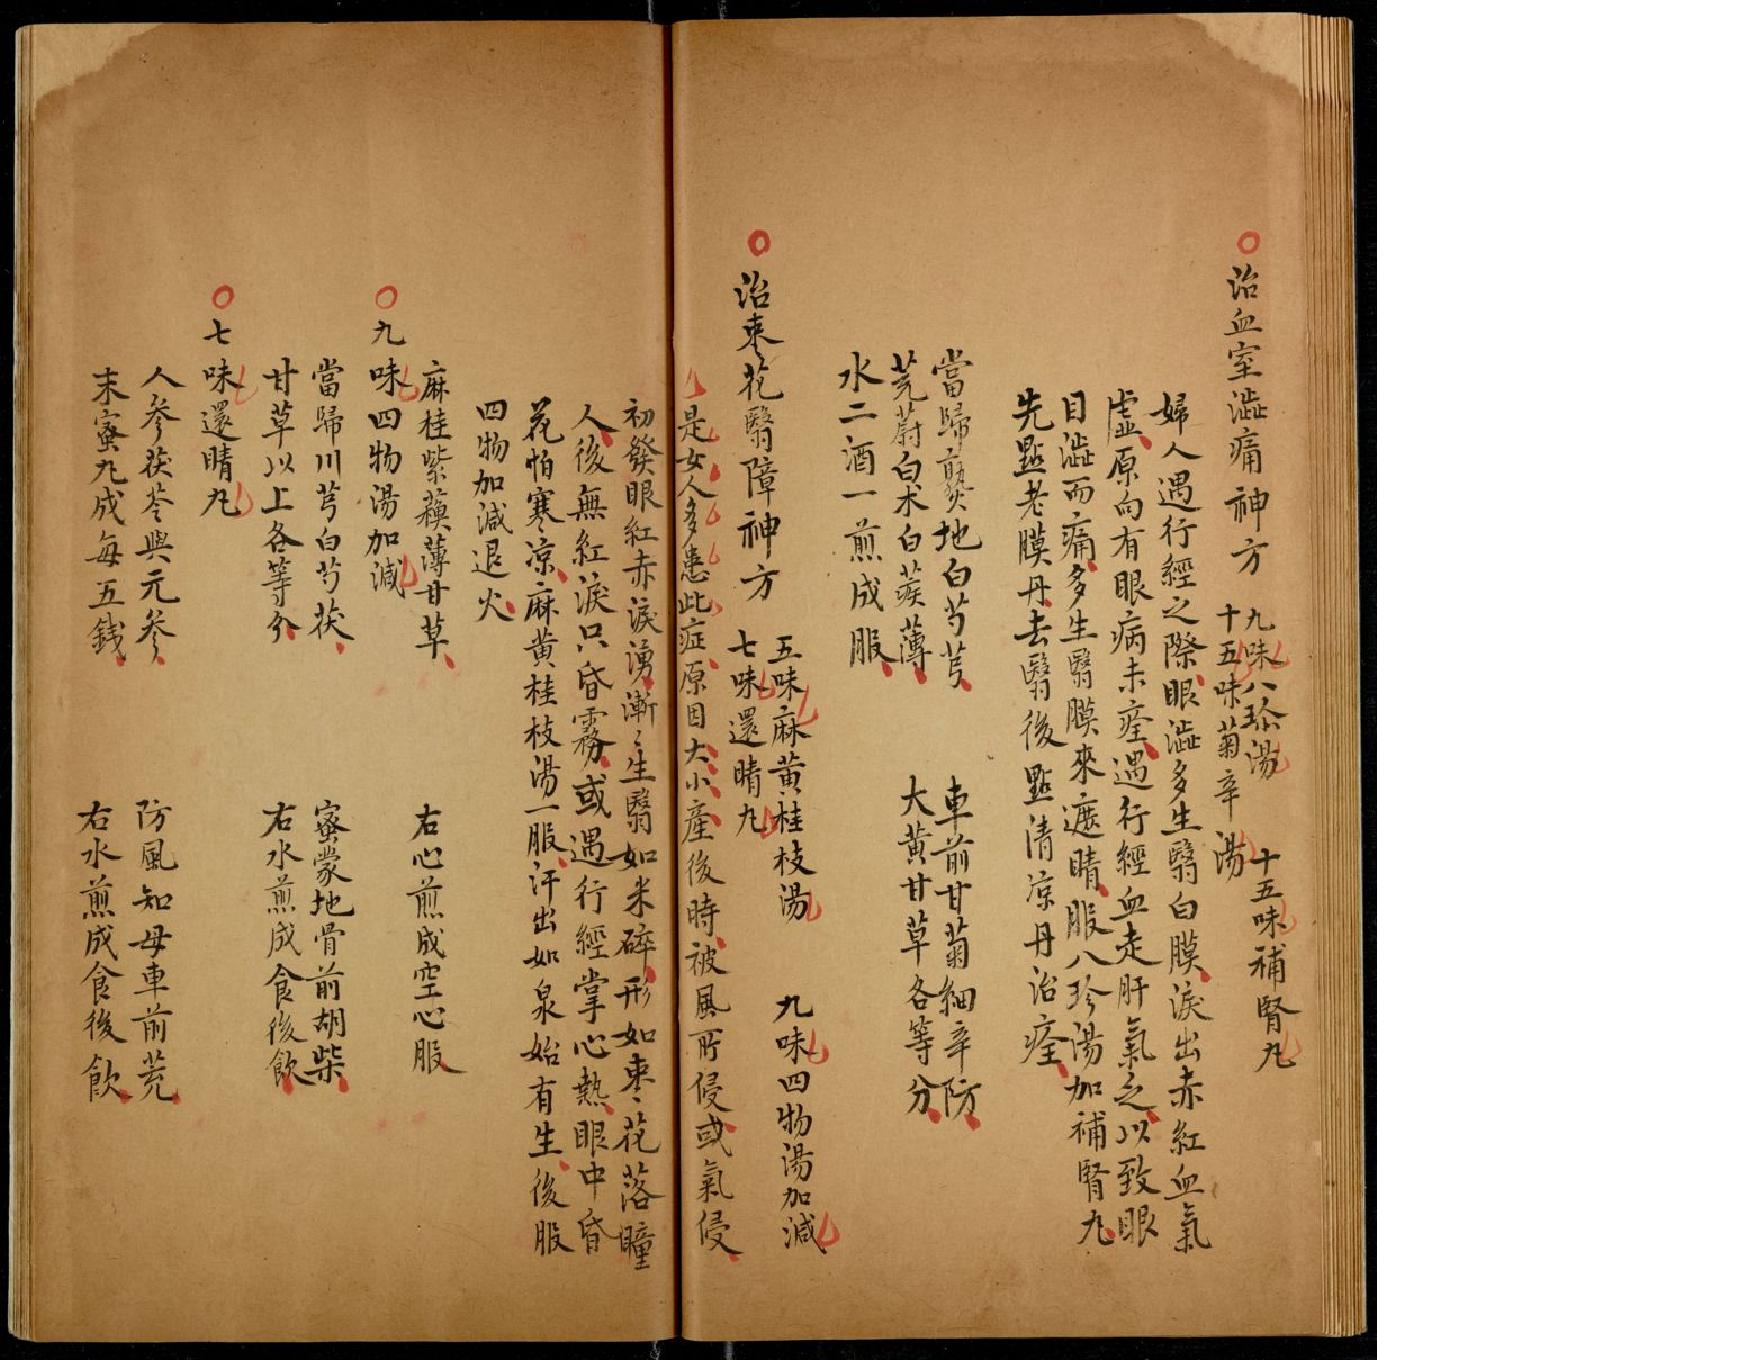 治血室澁痛神方
九味八珎湯　十五味補腎九
十五味菊辛湯
婦人遇行經之際眼澁多生翳白膜淚出赤紅血氣
虛原向有眼病未痊遇行經血走肝氣之以致眼
目澁而痛多生翳膜來遮睛服八珍湯加補腎九
先點老膜丹去翳後點清凉丹治痊
當歸𤍠地白芍芎　車前甘菊細辛防
茺蔚白术白蒺薄　大黄甘草各等分
水二酒一煎成服
治枣花翳障神方
五味麻黄桂枝湯　九味四物湯加減
七味還睛九
是女人多患此症原因大小產後時被風所侵或氣侵
初發眼紅赤淚湧漸〻生翳如米碎形如枣花落瞳
人後無紅淚只昏霧或遇行經掌心熱眼中昏
花怕寒凉麻黄桂枝湯一服汗出如泉始有生後服
四物加減退火
麻桂紫蘓薄甘草　右心煎成空心服
九味四物湯加減
當歸川芎白芍茯　蜜蒙地骨前胡柴
甘草以上各等分　右水煎成食後飲
七味還睛九
人參茯苓與元參　防風知母車前茺
末蜜九成每五錢　右水煎成食後飲